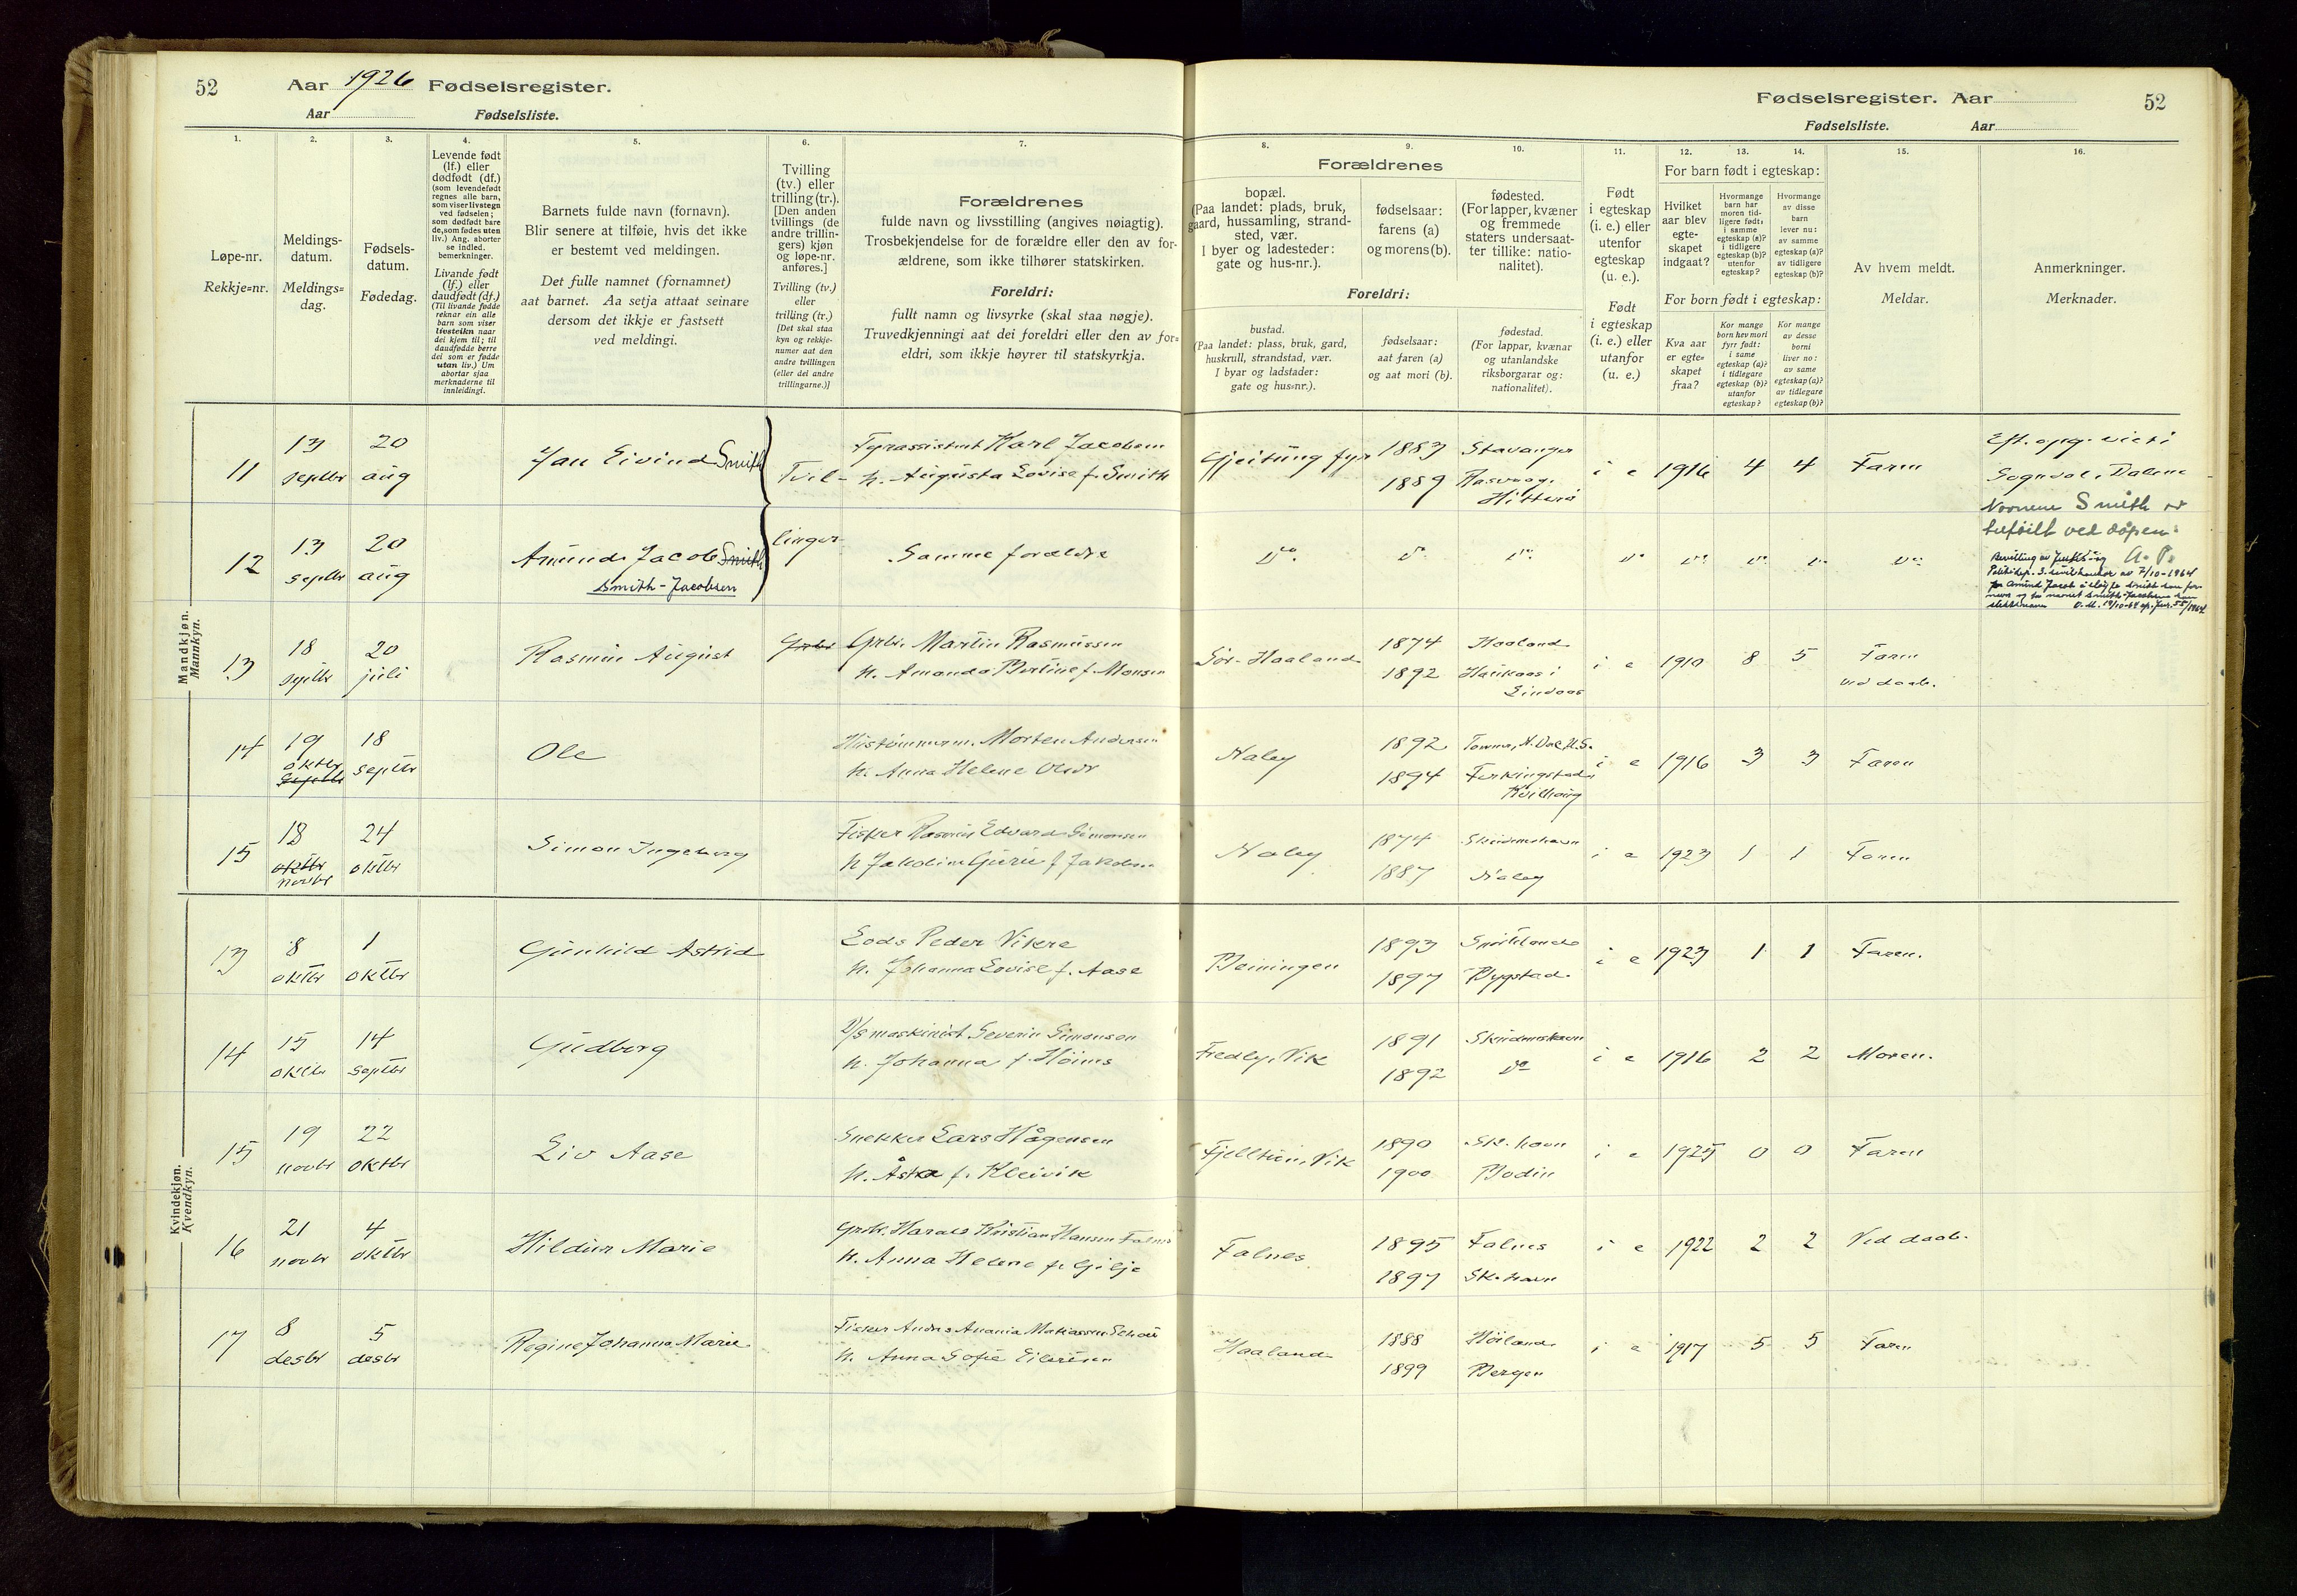 52 Aar 1926 Fødselsregister.
Aar Fødselsliste.
Fødselsregister. Aar 52
Fødselsliste. Aar
1. 2. 3. 4. 5. 6. 7. 8. 9. 10. 11. 12. 13. 14. 15. 16.
Løpe-nr.
Rekkje=nr.
Meldings-
datum.
Meldings=
dag.
Fødsels-
datum.
Fødedag.
Levende født
(lf.) eller
dødfødt (df.)
(som levendefødt
regnes alle barn,
som viser livstegn
ved fødselen;
som dødfødt bare
de, som fødes uten
liv.) Ang. aborter
se indled.
bemerkninger.
Livande født
(lf.) eller
daudfødt (df.)
(Til livande fødde
reknar ein alle
barn som viser
livsteikn naar
dei kjem til; til
daudfødde berre
dei som er fødde
utan liv.) Um
abortar sjaa
merknaderne til
innleidingi.
Barnets fulde navn (fornavn).
Blir senere at tilføie, hvis det ikke
er bestemt ved meldingen.
Det fulle namnet (fornamnet)
aat barnet. Aa setja attaat seinare
dersom det ikkje er fastsett
ved meldingi.
Tvilling
(tv.) eller
trilling (tr.).
[Den anden
tvillings (de
andre trillin-
gers) kjøn
og løpe-nr.
anføres.]
Tvilling (tv.)
eller
trilling (tr.)
[Det skal staa
kyn og rekkje-
numer aat den
andre tvillingen
(eller dei andre
trillingarne.)]
Forældrenes
fulde navn og livsstilling (angives nøiagtig).
Trosbekjendelse for de forældre eller den av for-
ældrene, som ikke tilhører statskirken.
Foreldri:
fullt namn og livsyrke (skal staa nøgje).
Truvedkjenningi aat dei foreldri eller den av for=
eldri, som ikkje høyrer til statskyrkja.
Forældrenes
bopæl.
(Paa landet: plads, bruk,
gaard, hussamling, strand-
sted, vær.
I byer og ladesteder:
gate og hus-nr.).
fødselsaar:
farens (a)
og morens (b).
fødested.
(For lapper, kvæner
og fremmede
staters undersaat-
ter tillike: natio-
nalitet).
Foreldri:
bustad.
(Paa landet: plass, bruk, gard,
huskrull, strandstad, vær.
I byar og ladstader:
gate og hus=nr.).
fødselsaar:
aat faren (a)
og aat mori (b).
fødestad.
(For lappar, kvænar
og utanlandske
riksborgarar og:
nationalitet).
Født
i egteskap
(i. e.) eller
utenfor
egteskap
(u. e.).
Født
i egteskap
(i. e.) eller
utanfor
(u. e.)
For barn født i egteskap:
Hvilket
aar blev
egte-
skapet
indgaat?
Hvormange
barn har
moren tid-
ligere født:
i samme
egteskap (a)?
i tidligere
egteskap (b)?
utenfor
egteskap?
Hvormange
av disse
barn
lever nu:
av samme
egteskap (a)?
av tidligere
egteskap (b)?
For born født i egteskap:
Kva aar
er egte=
skapet
fraa?
Kor mange
born hev mori
fyrr født:
i same
egteskap (a)?
i tidlegare
egteskap (b)?
utanfor
egteskap?
Kor mange
av desse
borni
liver no:
av same
egteskap (a)?
av tidlegare
egteskap (b)?
Av hvem meldt.
Meldar.
Anmerkninger.
Merknader.
Mandkjøn.
Mannkyn.
11 13 septbr 20 aug Jan Eivind Smith Tvil-
Fyrassistent Karl Jacobsen
h. Augusta Lovise f. Smith
Gjeitung fyr 1883 Stavanger
1889 Rasvaag, Hitterø
i e 1916 4 4 Faren
Sogndal i Dalene
Navnene Smith er
tilføilt ved dåpen.
12 13 septbr 20 aug Amund Jacob Smith
Smith-Jacobsen
linger
Samme foreldre
do. do. do. do. do. do. do. do.
13 18 septbr 20 juli Rasmus August
Grbr. Martin Rasmussen
h. Amanda Bertine f. Monsen
Sør-Haaland 1874 Haaland
1892 Haukaas i Lindaas
i e 1910 8 5 Faren
ved daab.
14 19 oktbr septbr 18 septbr Ole
Morten Andersen
h. Anna Helene
Naley 1892
1894 Ferkingstad
i e 1916 3 3 Faren
15 18 oktbr novbr 24 oktbr Simon Ingeborg
Fisker Rasmus Edvard Simonsen
h. Jakobine Gurie f. Jakobsen
Naley 1874 Skudeneshavn
1887 Naley
i e 1923 1 1 Faren
Kvindekjøn.
Kvendkyn.
13 8 oktbr 1 oktbr Gunhild Astrid
Lods Peder Vikre
h. Johanna Lovise f. Aase
Beiningen 1893
1897 Bygstad
i e 1923 1 1 Faren.
14 15 oktbr 14 septbr Gudborg
D/s maskinist Severin Simonsen
h. Johanna f. Høines
Fredly, Vik 1891 Skudeneshavn
1892 do
i e 1916 2 2 Moren.
15 19 novbr 22 oktbr Liv Aase
Snekker Lars Hågensen
h. Åsta f. Kleivik
Fjelltun, Vik 1890 Sk.havn
1900 Bodin
i e 1925 0 0 Faren
16 21 novbr 4 oktbr Hildur Marie
Grbr. Harald Kristian Hansen Falnes
h. Anna Helene f. Gilje
Falnes 1895 Falnes
1897 Sk.havn
i e 1922 2 2 Ved daab.
17 8 desbr 5 desbr Regine Johanna Marie
Fisker Andreas Anania Matiassen
h. Anna Sofie Eilertsen
Haaland 1888 Høiland
1899 Bergen
i e 1917 5 5 Faren